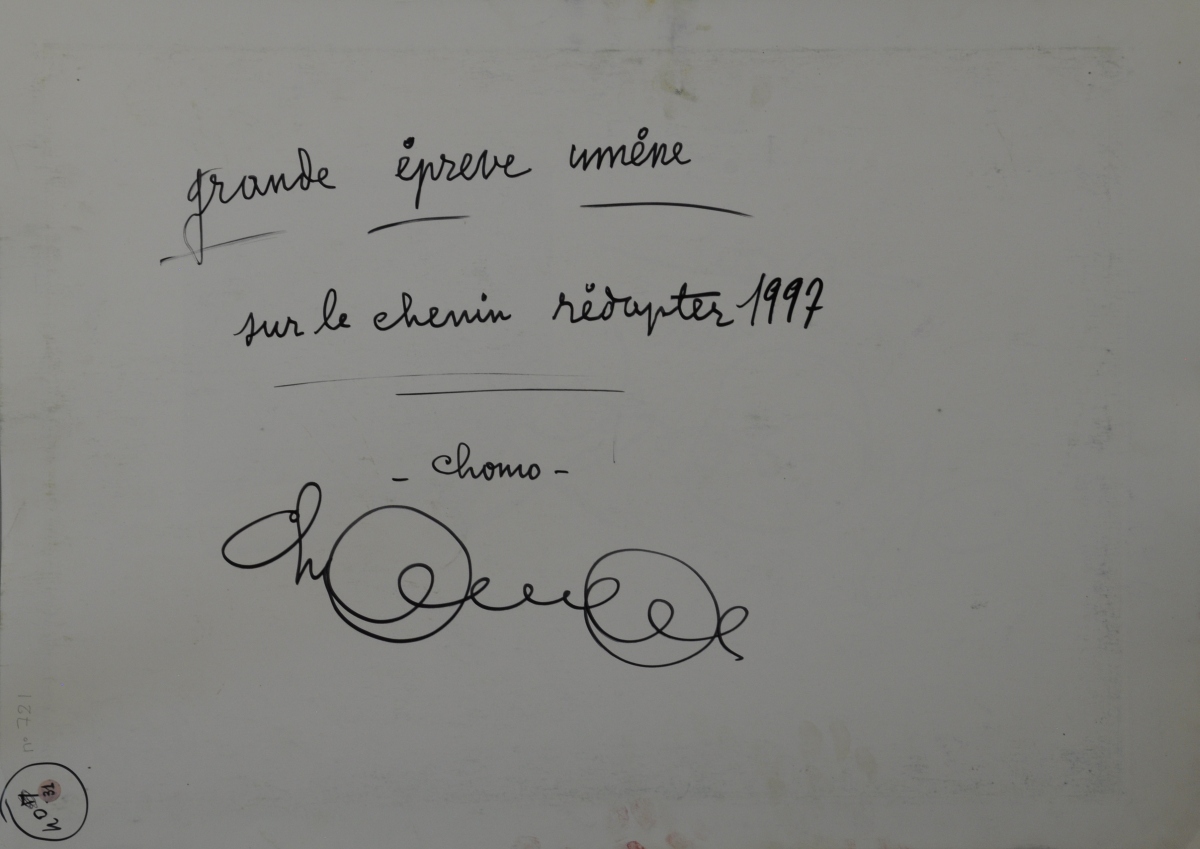 grande épreve umène
sur le chenin rédapter 1997
- Chomo -
Chomo
n° 721